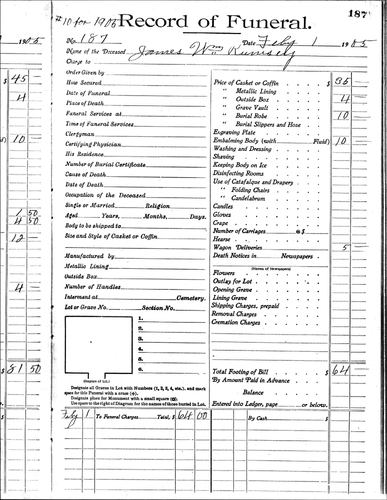 187
10 for 1905 Record of Funeral.
No. 187 Date Feby 1 1905
Name of the Deceased James Wm Rumsey
Charge to
Order Given by
How Secured
Date of Funeral
Place of Death
Funeral Services at
Time of Funeral Services
Clergyman
Certifying Physician
His Residence
Number of Burial Certificate
Cause of Death
Date of Death
Occupation of the Deceased
Single or Married Religion
Aged Years, Months, Days.
Body to be shipped to
Size and Style of Casket or Coffin
Manufactured by
Metallic Lining
Outside Box
Number of Handles
Interment at Cemetery.
Lot or Grave No. Section No.
1.
2.
3.
4.
5.
6.
(Diagram of Lot.)
Designate all Graves in Lot with Numbers (1, 2, 3, 4, etc.), and mark
space for this Funeral with a cross (+).
Designate place for Monument with a small square
Use space to the right of Diagram for the names of those buried in Lot.
Price of Casket or Coffin $ 35 —
" Metallic Lining
" Outside Box 4 —
" Grave Vault
" Burial Robe 10 —
" Burial Slippers and Hose
Engraving Plate
Embalming Body (with Fluid) 10 —
Washing and Dressing
Shaving
Keeping Body on Ice
Disinfecting Rooms
Use of Catafalque and Drapery
" Folding Chairs
" Candelabrum
Candles
Gloves
Crape
Number of Carriages @ $
Hearse
Wagon Deliveries 5 —
Death Notices in Newspapers
(Names of Newspapers)
Flowers
Outlay for Lot
Opening Grave
Lining Grave
Shipping Charges, prepaid
Removal Charges
Cremation Charges
Total Footing of Bill $ 64 —
By Amount Paid in Advance
Balance
Entered into Ledger, page or below.
Feby 1 To Funeral Charges Total, $ 64 00 By Cash $
1905
$ 45 —
4
10 —
1 50
4 50
12 —
4 —
$ 81 50